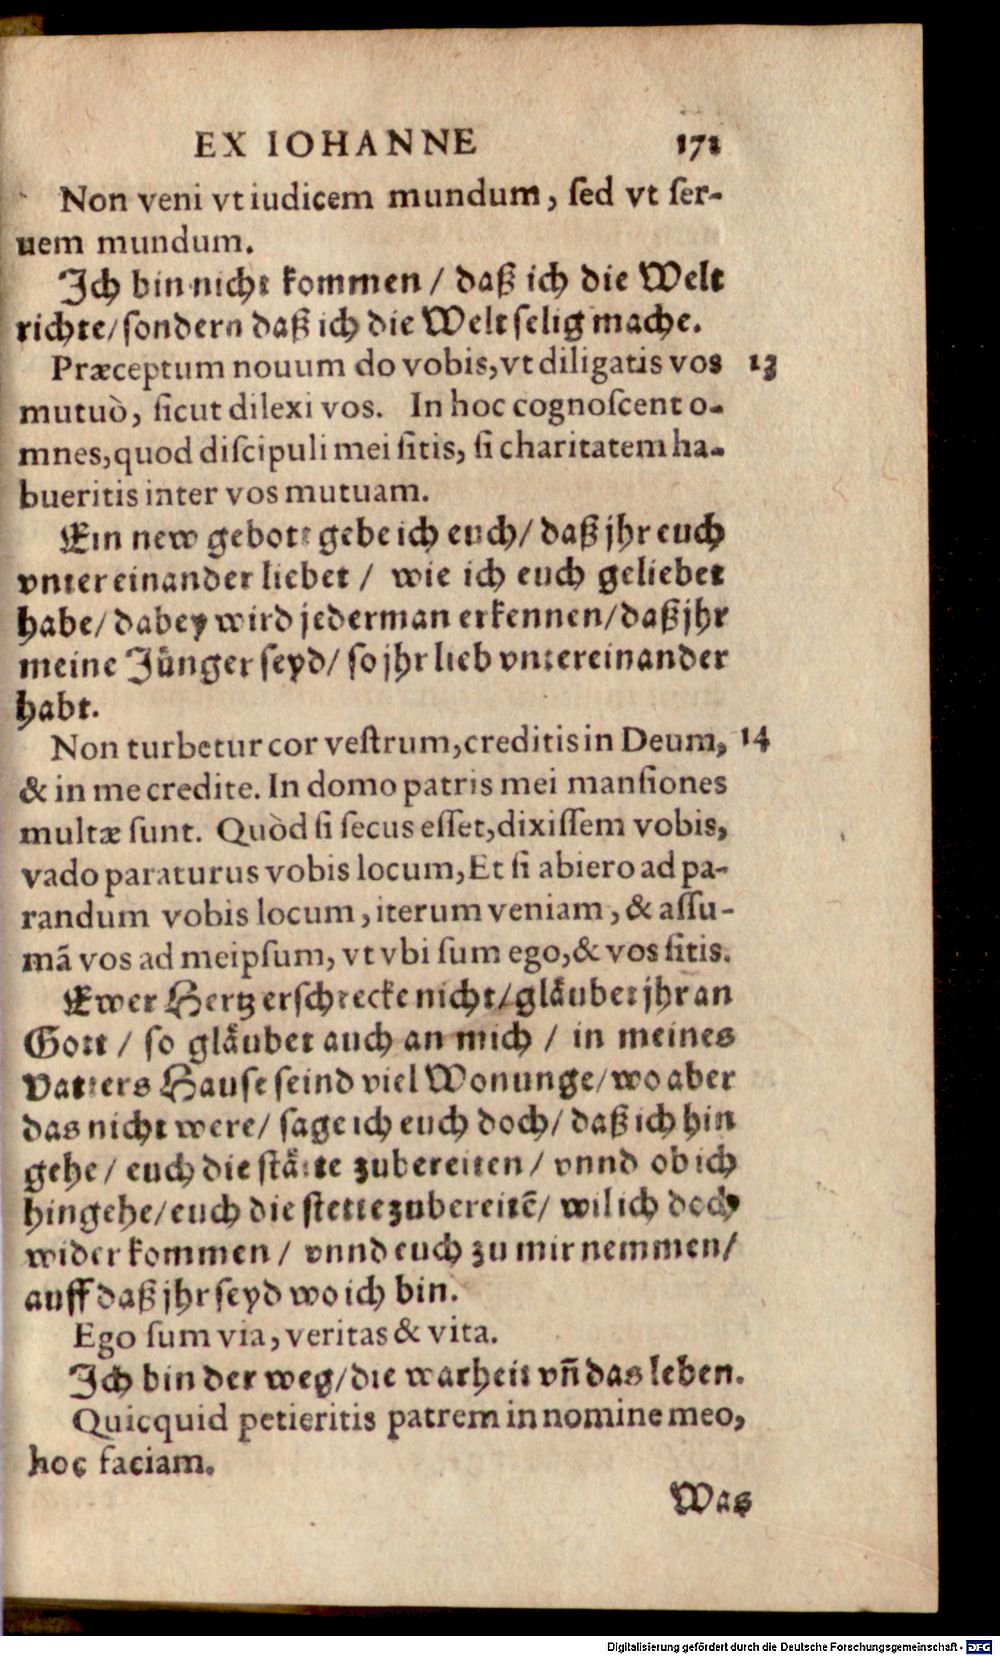 EX IOHANNE 171
Non veni vt iudicem mundum, ſed vt ſer-
uem mundum.
Ich bin nicht kommen / daß ich die Welt
richte/ſondern daß ich die Welt ſelig mache.
Præceptum nouum do vobis,vt diligatis vos 13
mutuò, ſicut dilexi vos. In hoc cognoſcent o-
mnes,quod diſcipuli mei ſitis, ſi charitatem ha-
bueritis inter vos mutuam.
Ein new gebott gebe ich euch/ daß jhr euch
vntereinander liebet / wie ich euch geliebet
habe/ dabey wird jederman erkennen/daß jhr
meine Jünger ſeyd/ ſo jhr lieb vntereinander
habt.
Non turbetur cor veſtrum,creditis in Deum, 14
& in me credite. In domo patris mei manſiones
multæ ſunt. Quòd ſi ſecus eſſet,dixiſſem vobis,
vado paraturus vobis locum,Et ſi abiero ad pa-
randum vobis locum,iterum veniam,& aſſu-
mã vos ad meipſum, vt vbi ſum ego,& vos ſitis.
Ewer Hertz erſchrecke nicht/gläubet jhr an
Gott / ſo gläubet auch an mich / in meines
Vatters Hauſe ſeind viel Wonunge/wo aber
das nicht were/ ſage ich euch doch/ daß ich hin
gehe/ euch die ſtätte zubereiten/ vnnd ob ich
hingehe/euch die ſtette zubereitẽ/ wil ich doch
wider kommen/ vnnd euch zu mir nemmen/
auff daß jhr ſeyd wo ich bin.
Ego ſum via,veritas & vita.
Ich bin der weg/die warheit vñ das leben.
Quicquid petieritis patrem in nomine meo,
hoc faciam.
Was
Digitalisierung gefördert durch die Deutsche Forschungsgemeinschaft - DFG